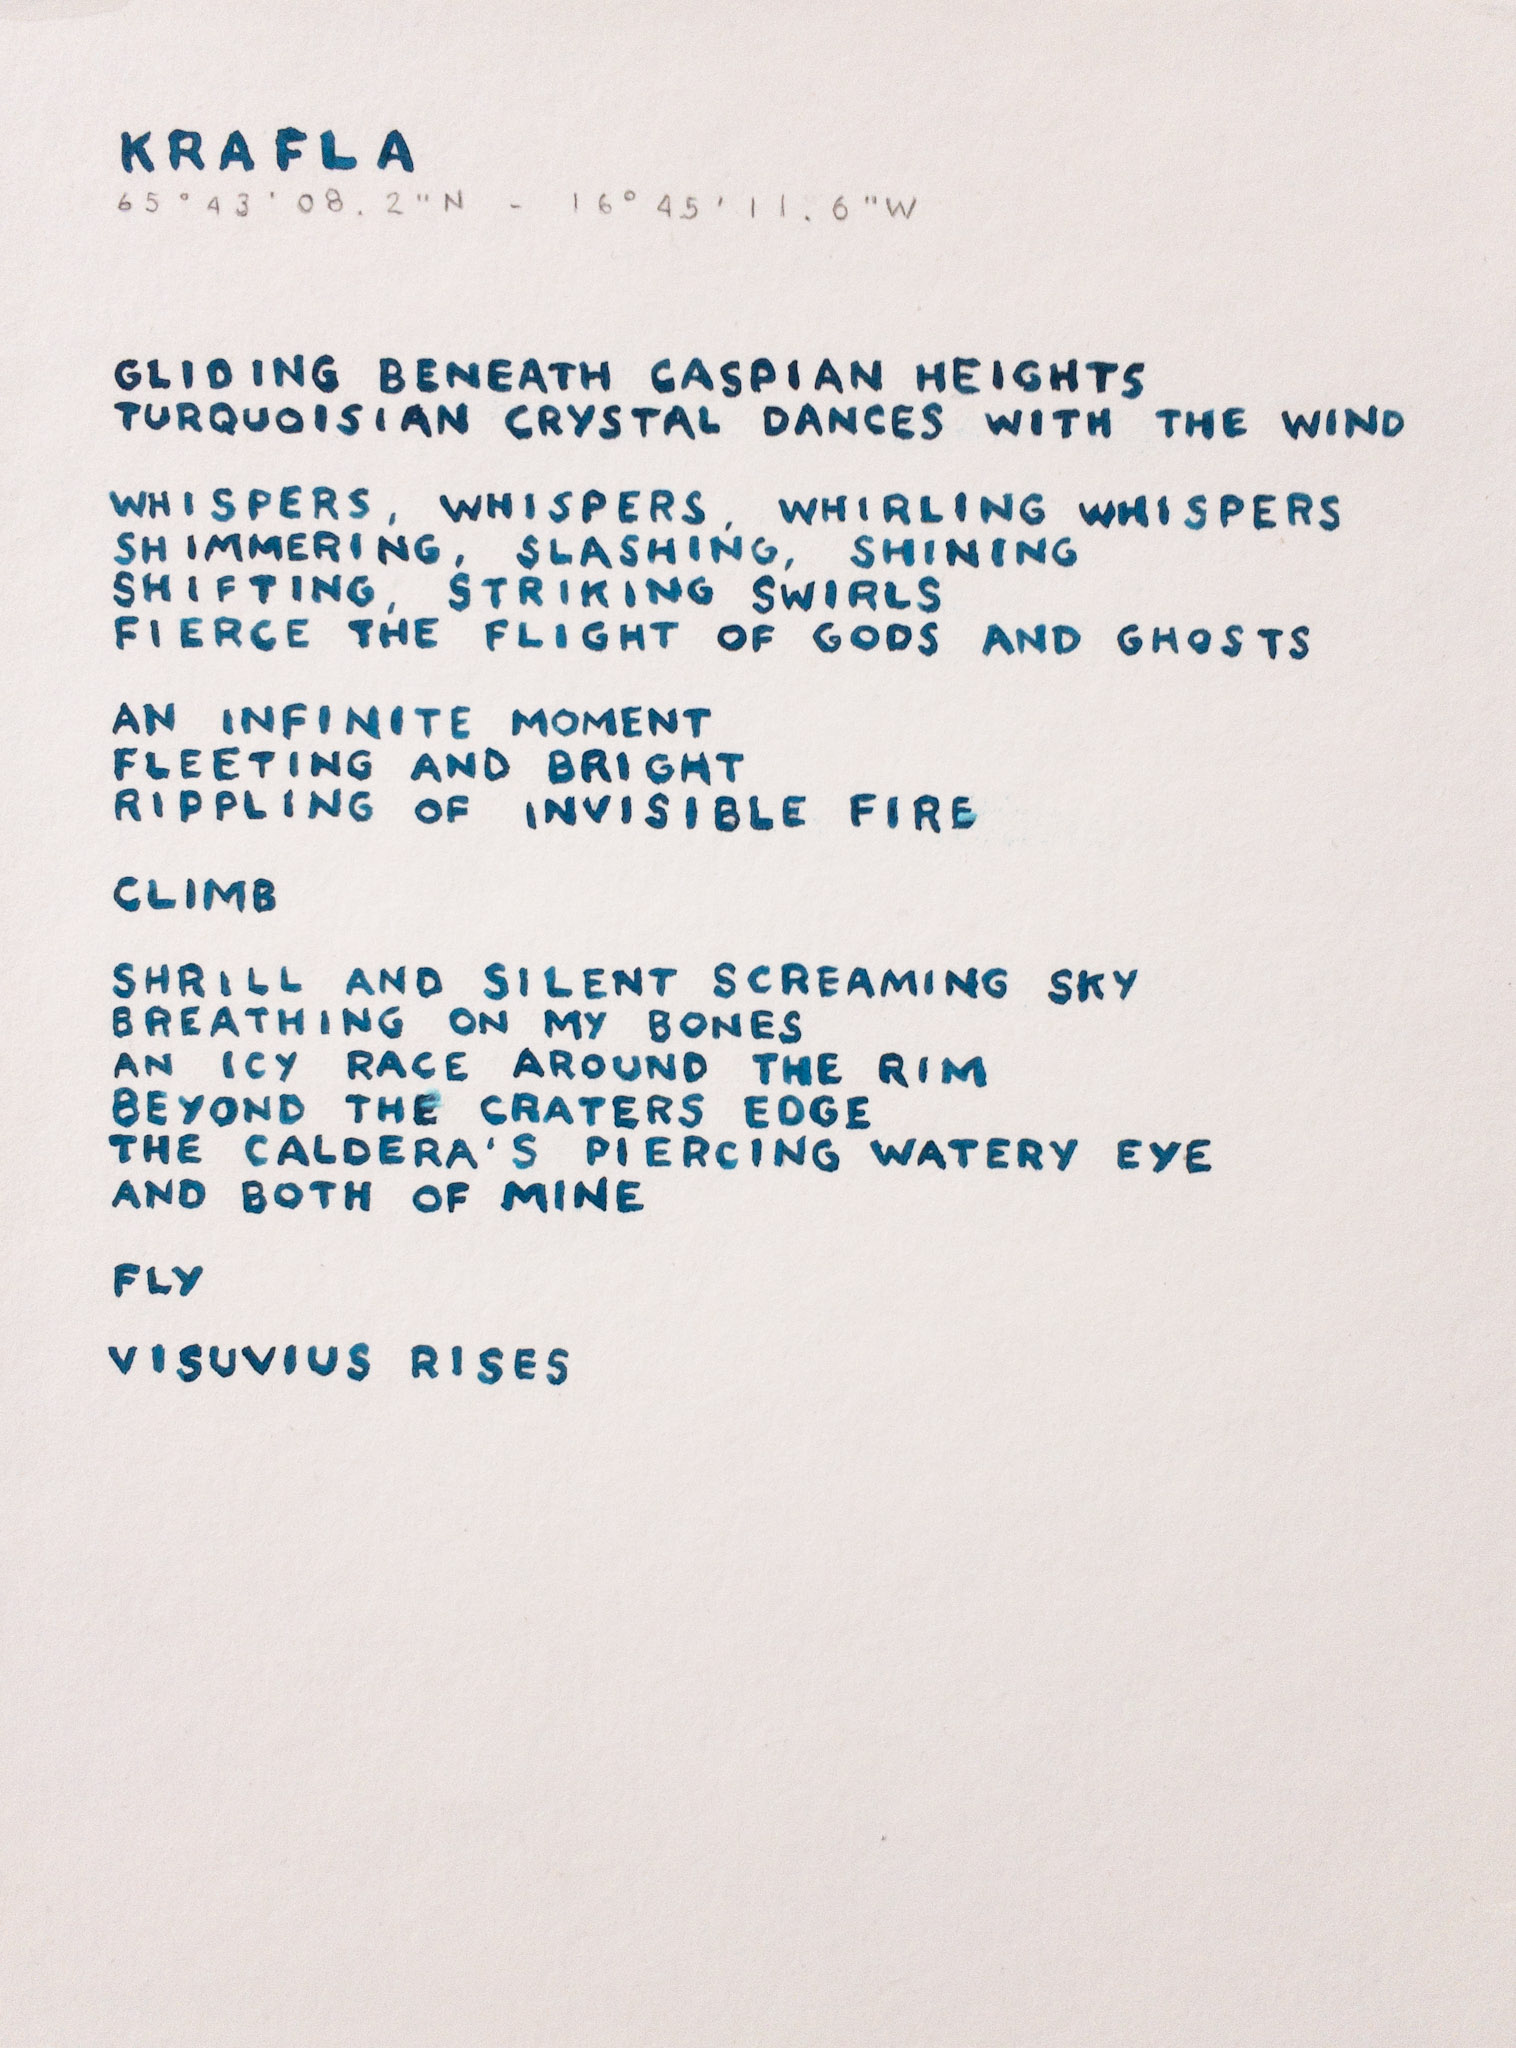 KRAFLA
65°43'08.2"N - 16°45'11.6"W
GLIDING BENEATH CASPIAN HEIGHTS
TURQUOISIAN CRYSTAL DANCES WITH THE WIND
WHISPERS, WHISPERS, WHIRLING WHISPERS
SHIMMERING, SLASHING, SHINING
SHIFTING, STRIKING SWIRLS
FIERCE THE FLIGHT OF GODS AND GHOSTS
AN INFINITE MOMENT
FLEETING AND BRIGHT
RIPPLING OF INVISIBLE FIRE
CLIMB
SHRILL AND SILENT SCREAMING SKY
BREATHING ON MY BONES
AN ICY RACE AROUND THE RIM
BEYOND THE CRATERS EDGE
THE CALDERA'S PIERCING WATERY EYE
AND BOTH OF MINE
FLY
VISUVIUS RISES